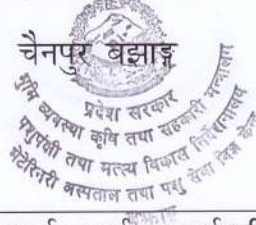 चैनपुर बझाङ्ग
प्रदेश सरकार
भूमि व्यवस्था कृषि तथा सहकारी मन्त्रालय
पशुपंक्षी तथा मत्स्य विकास निर्देशनालय
भेटेरिनरी अस्पताल तथा पशु सेवा विज्ञ केन्द्र